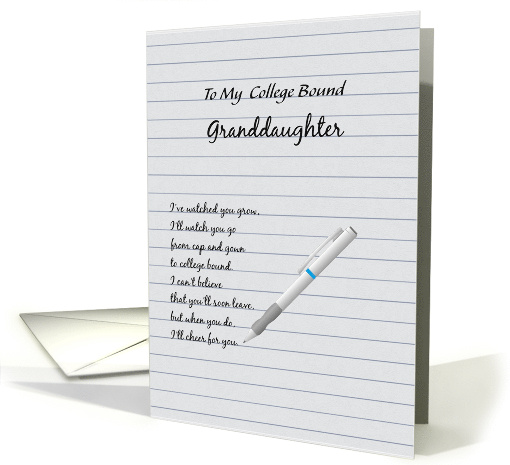 To My College Bound
Granddaughter
I've watched you grow,
I'll watch you go
from cap and gown
to college bound.
I can't believe
that you'll soon leave,
but when you do,
I'll cheer for you.